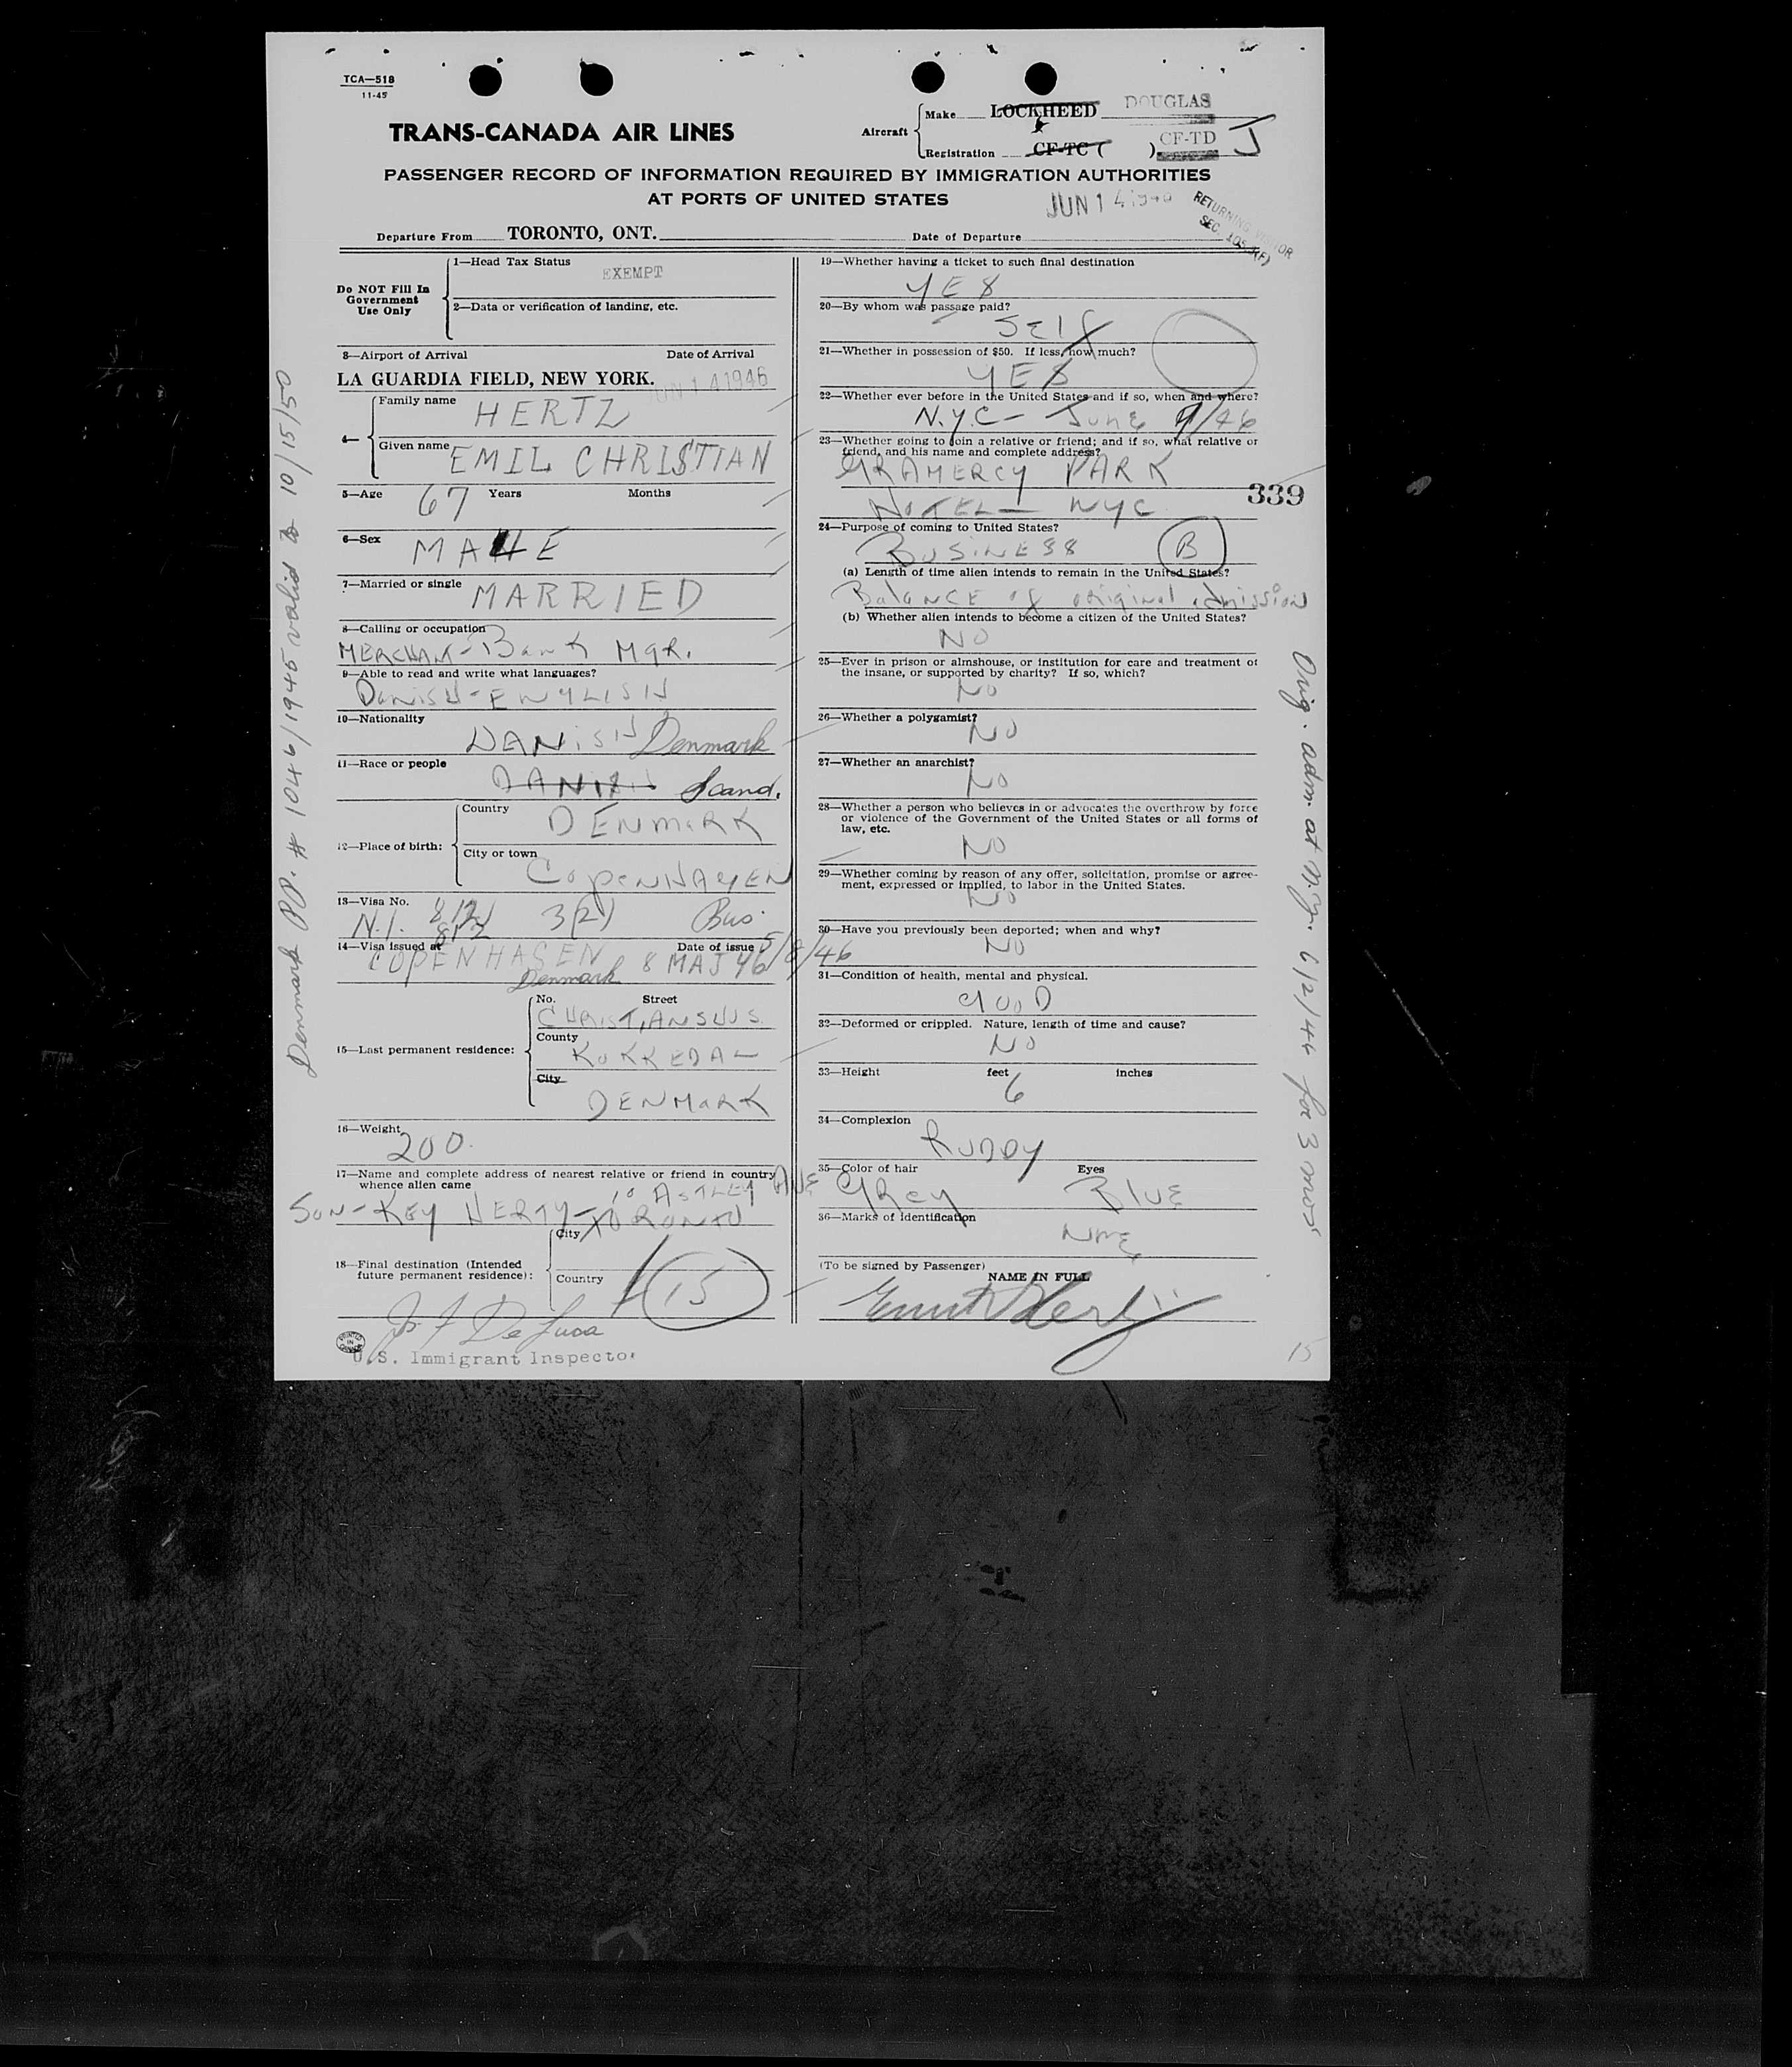 TCA—518
11-45
TRANS-CANADA AIR LINES
Aircraft
Make LOCKHEED DOUGLAS
Registration CF-TC ( ) CF-TD J
PASSENGER RECORD OF INFORMATION REQUIRED BY IMMIGRATION AUTHORITIES
AT PORTS OF UNITED STATES
JUN 14 1946
RETURNING VISITOR
SEC.
Departure From TORONTO, ONT. Date of Departure
Do NOT Fill In
Government
Use Only
1—Head Tax Status
EXEMPT
2—Data or verification of landing, etc.
3—Airport of Arrival Date of Arrival
LA GUARDIA FIELD, NEW YORK. JUN 14 1946
4—
Family name HERTZ
Given name EMIL CHRISTIAN
5—Age 67 Years Months
6—Sex MALE
7—Married or single MARRIED
8—Calling or occupation
MERCHANT-Bank MGR.
9—Able to read and write what languages?
DANISH-ENGLISH
10—Nationality
DANISH Denmark
11—Race or people
DANISH Scand.
12—Place of birth:
Country
DENMARK
City or town
COPENHAGEN
13—Visa No.
N.I. 812 3(2) Bus.
812
14—Visa issued at Date of issue 5/8/46
COPENHAGEN 8 MAJ 46
Denmark
15—Last permanent residence:
No. Street
CHRISTIANSHUS
County
KOKKEDAL
City
DENMARK
16—Weight
200
17—Name and complete address of nearest relative or friend in country
whence alien came
10 ASTLEY AVE
SON-KEY HERTZ-TORONTO
18—Final destination (Intended
future permanent residence):
City
Country
15
De Luca
U.S. Immigrant Inspector
PRINTED
IN
19—Whether having a ticket to such final destination
YES
20—By whom was passage paid?
SELF
21—Whether in possession of $50. If less, how much?
YES
22—Whether ever before in the United States and if so, when and where?
N.Y.C- June /46
23—Whether going to join a relative or friend; and if so, what relative or
friend, and his name and complete address?
GRAMERCY PARK
HOTEL— NYC
339
24—Purpose of coming to United States?
BUSINESS B
(a) Length of time alien intends to remain in the United States?
Balance of original admission
(b) Whether alien intends to become a citizen of the United States?
NO
25—Ever in prison or almshouse, or institution for care and treatment of
the insane, or supported by charity? If so, which?
NO
26—Whether a polygamist?
NO
27—Whether an anarchist?
NO
28—Whether a person who believes in or advocates the overthrow by force
or violence of the Government of the United States or all forms of
law, etc.
NO
29—Whether coming by reason of any offer, solicitation, promise or agree-
ment, expressed or implied, to labor in the United States.
NO
30—Have you previously been deported; when and why?
NO
31—Condition of health, mental and physical.
GOOD
32—Deformed or crippled. Nature, length of time and cause?
NO
33—Height feet inches
6
34—Complexion
RUDDY
35—Color of hair Eyes
GREY BLUE
36—Marks of identification
(To be signed by Passenger)
NAME IN FULL
Hertz
15
Denmark PP. # 1046/1945 valid to 10/15/50
Orig. adm. at N.Y. 6/2/46 for 3 mos